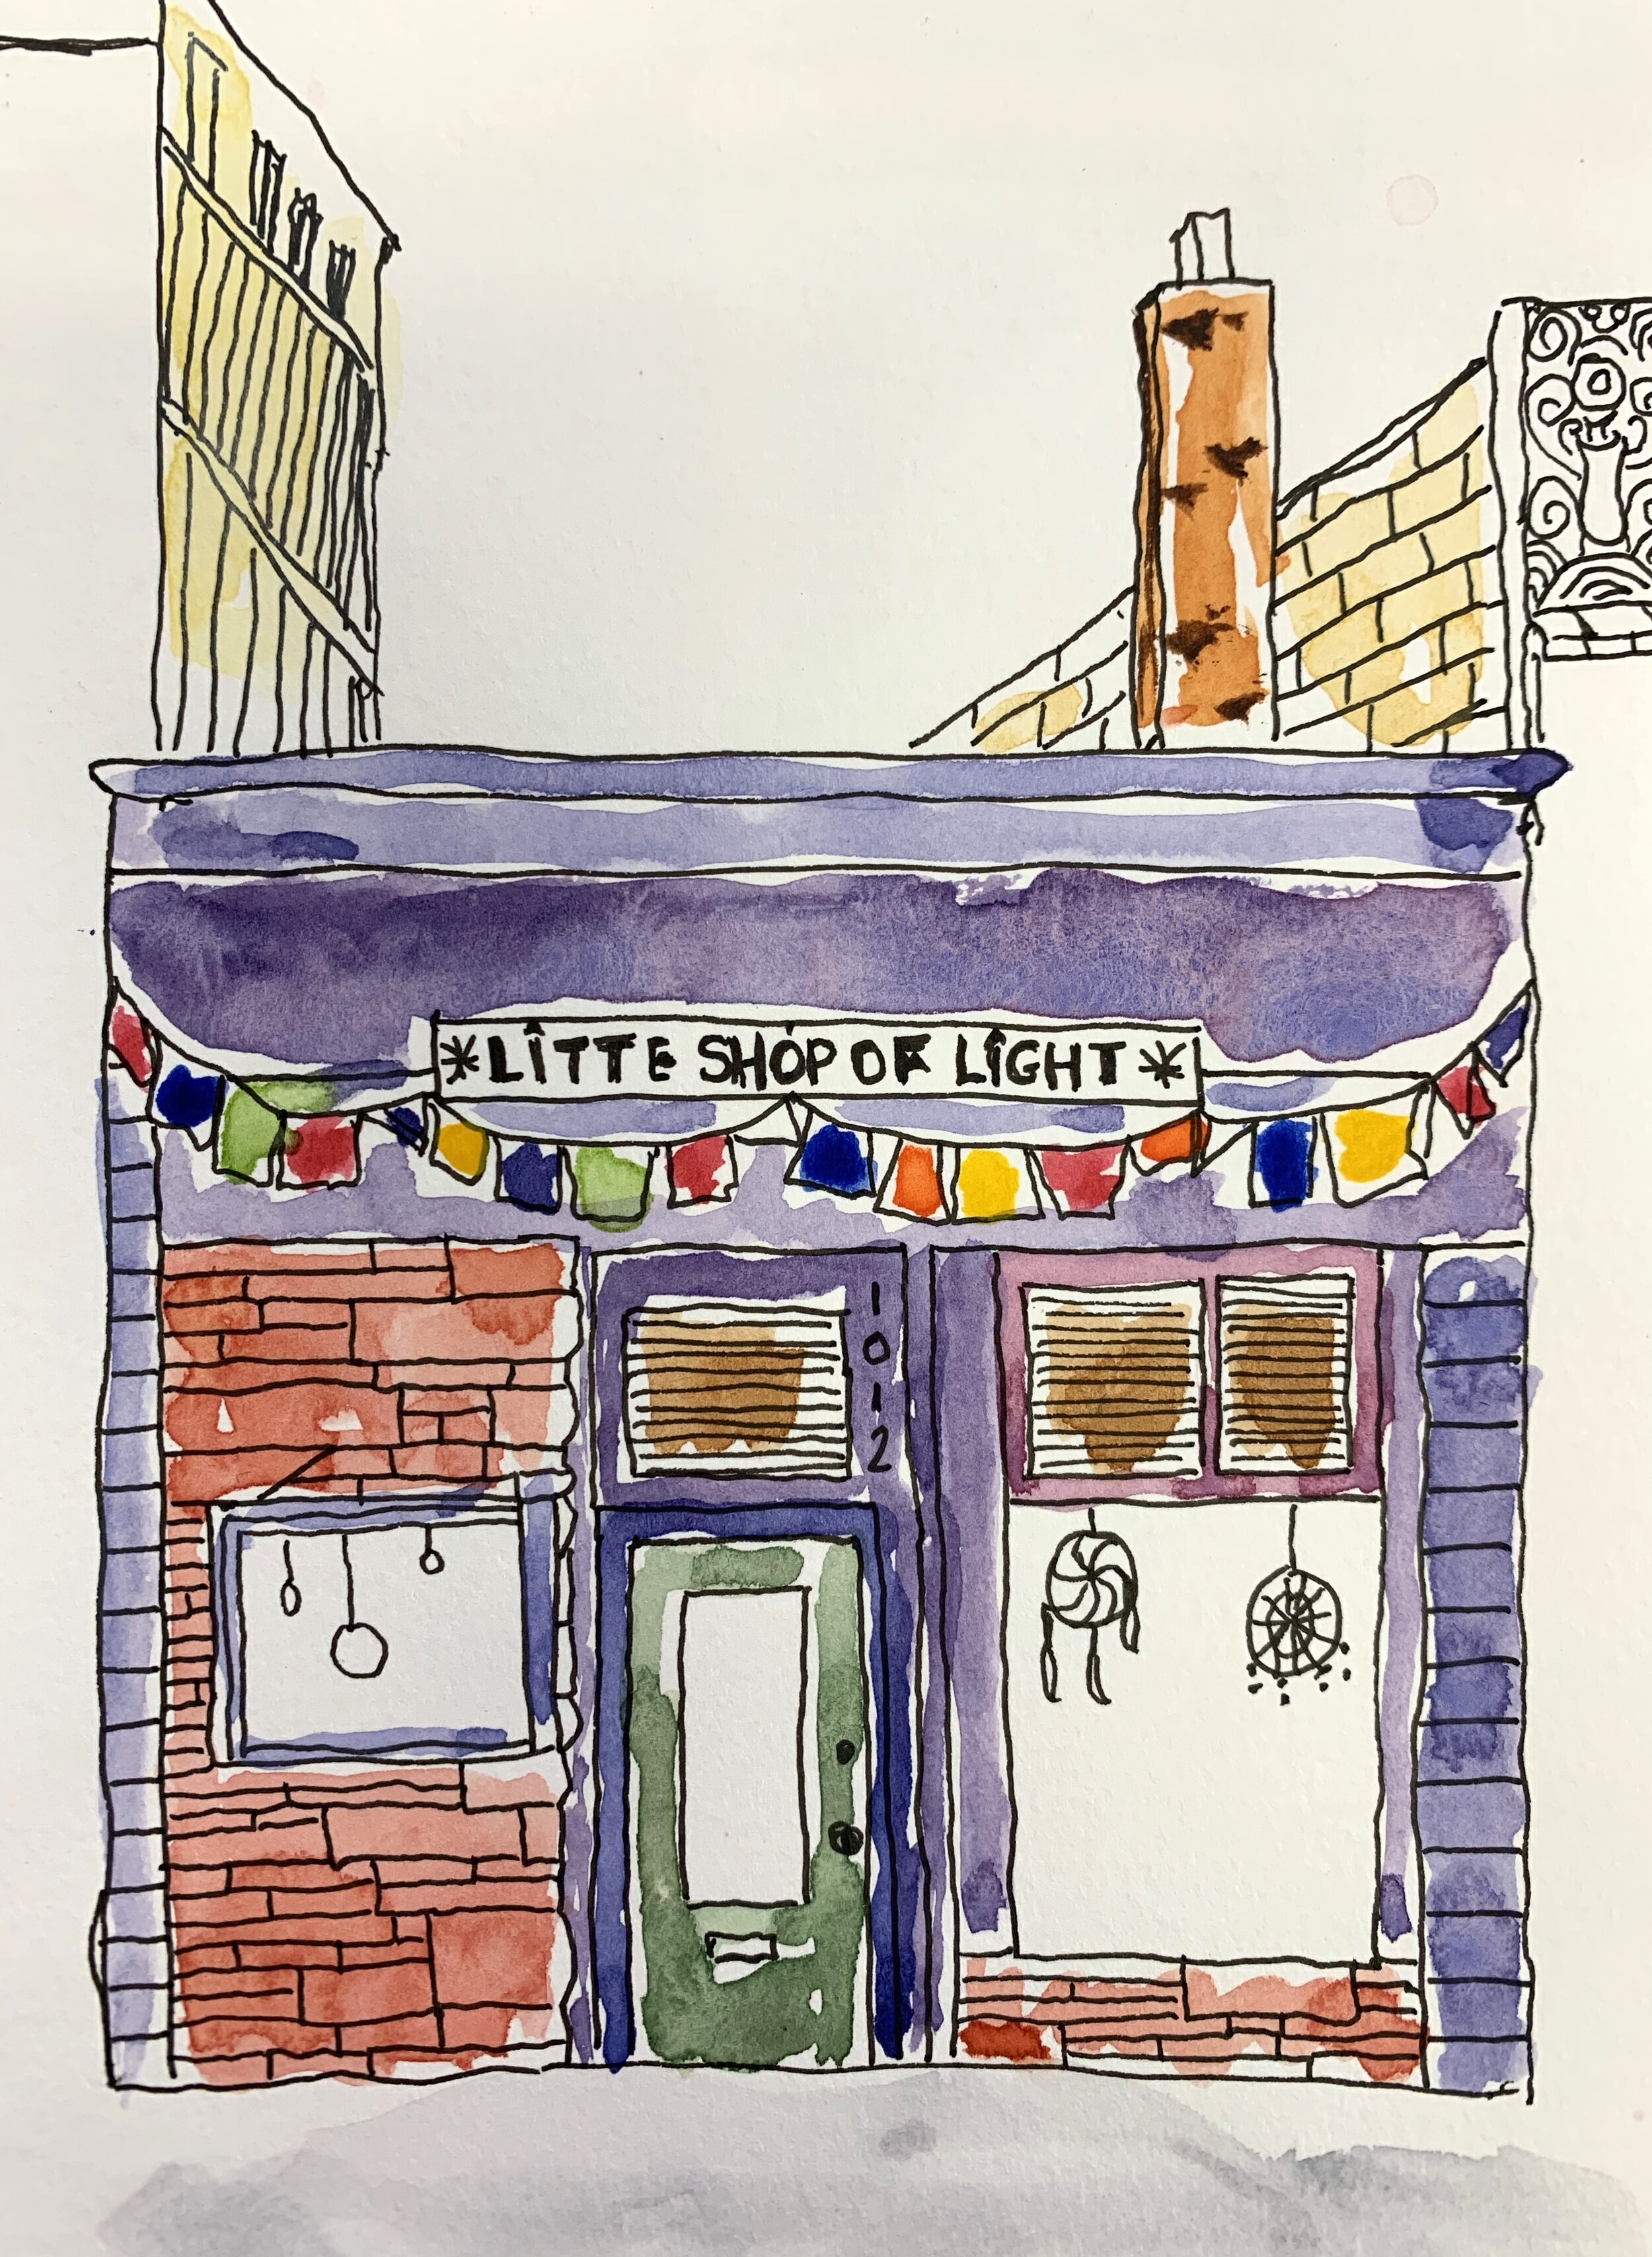 *LITTE SHOP OF LIGHT*
1012